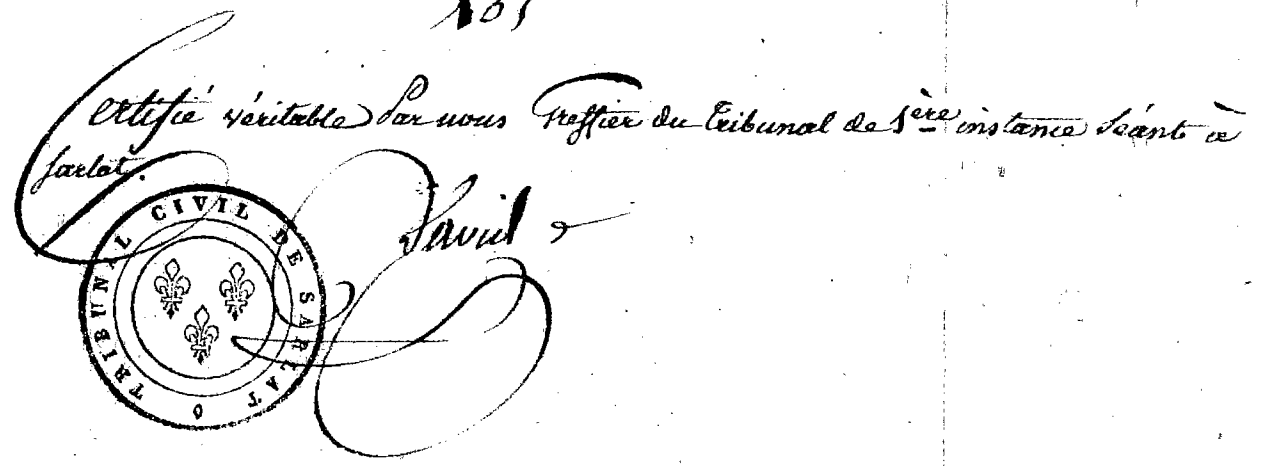 Certifié véritable Par nous Greffier du Tribunal de 1ère instance Séant à
Sarlat.
TRIBUNAL CIVIL DE SARLAT